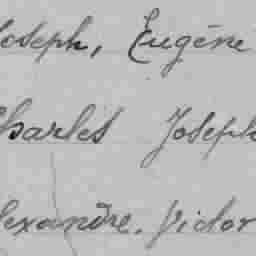 Joseph, Eugène
Charles Joseph
lexandre. Victor